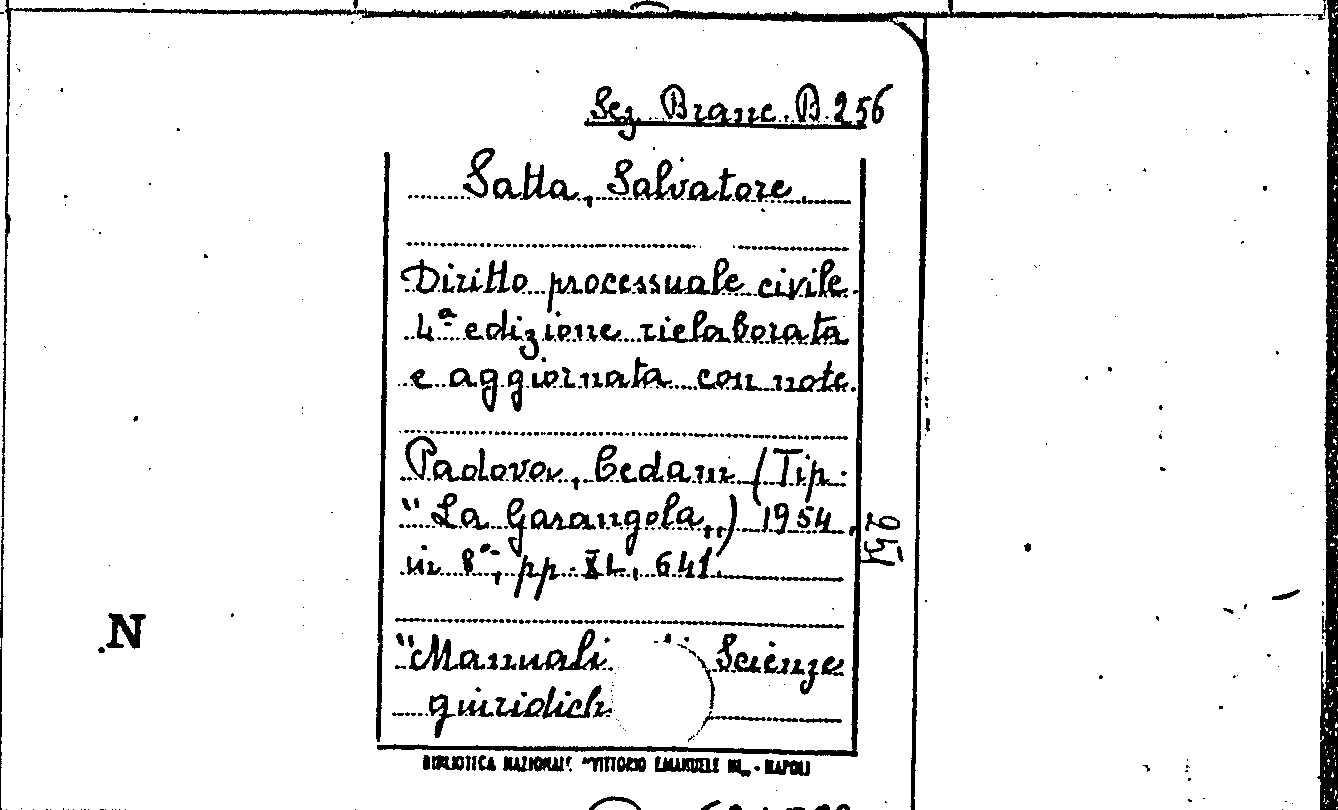 Sez. Branc. B. 256
Satta, Salvatore.
Diritto processuale civile.
4ª edizione rielaborata
e aggiornata con note.
Padova, Cedam (Tip.
"La Garangola,,) 1954,
in 8°, pp. XL, 641.
"Manuali di Scienze
giuridich
BIBLIOTECA NAZIONALE "VITTORIO EMANUELE III,, - NAPOLI
N